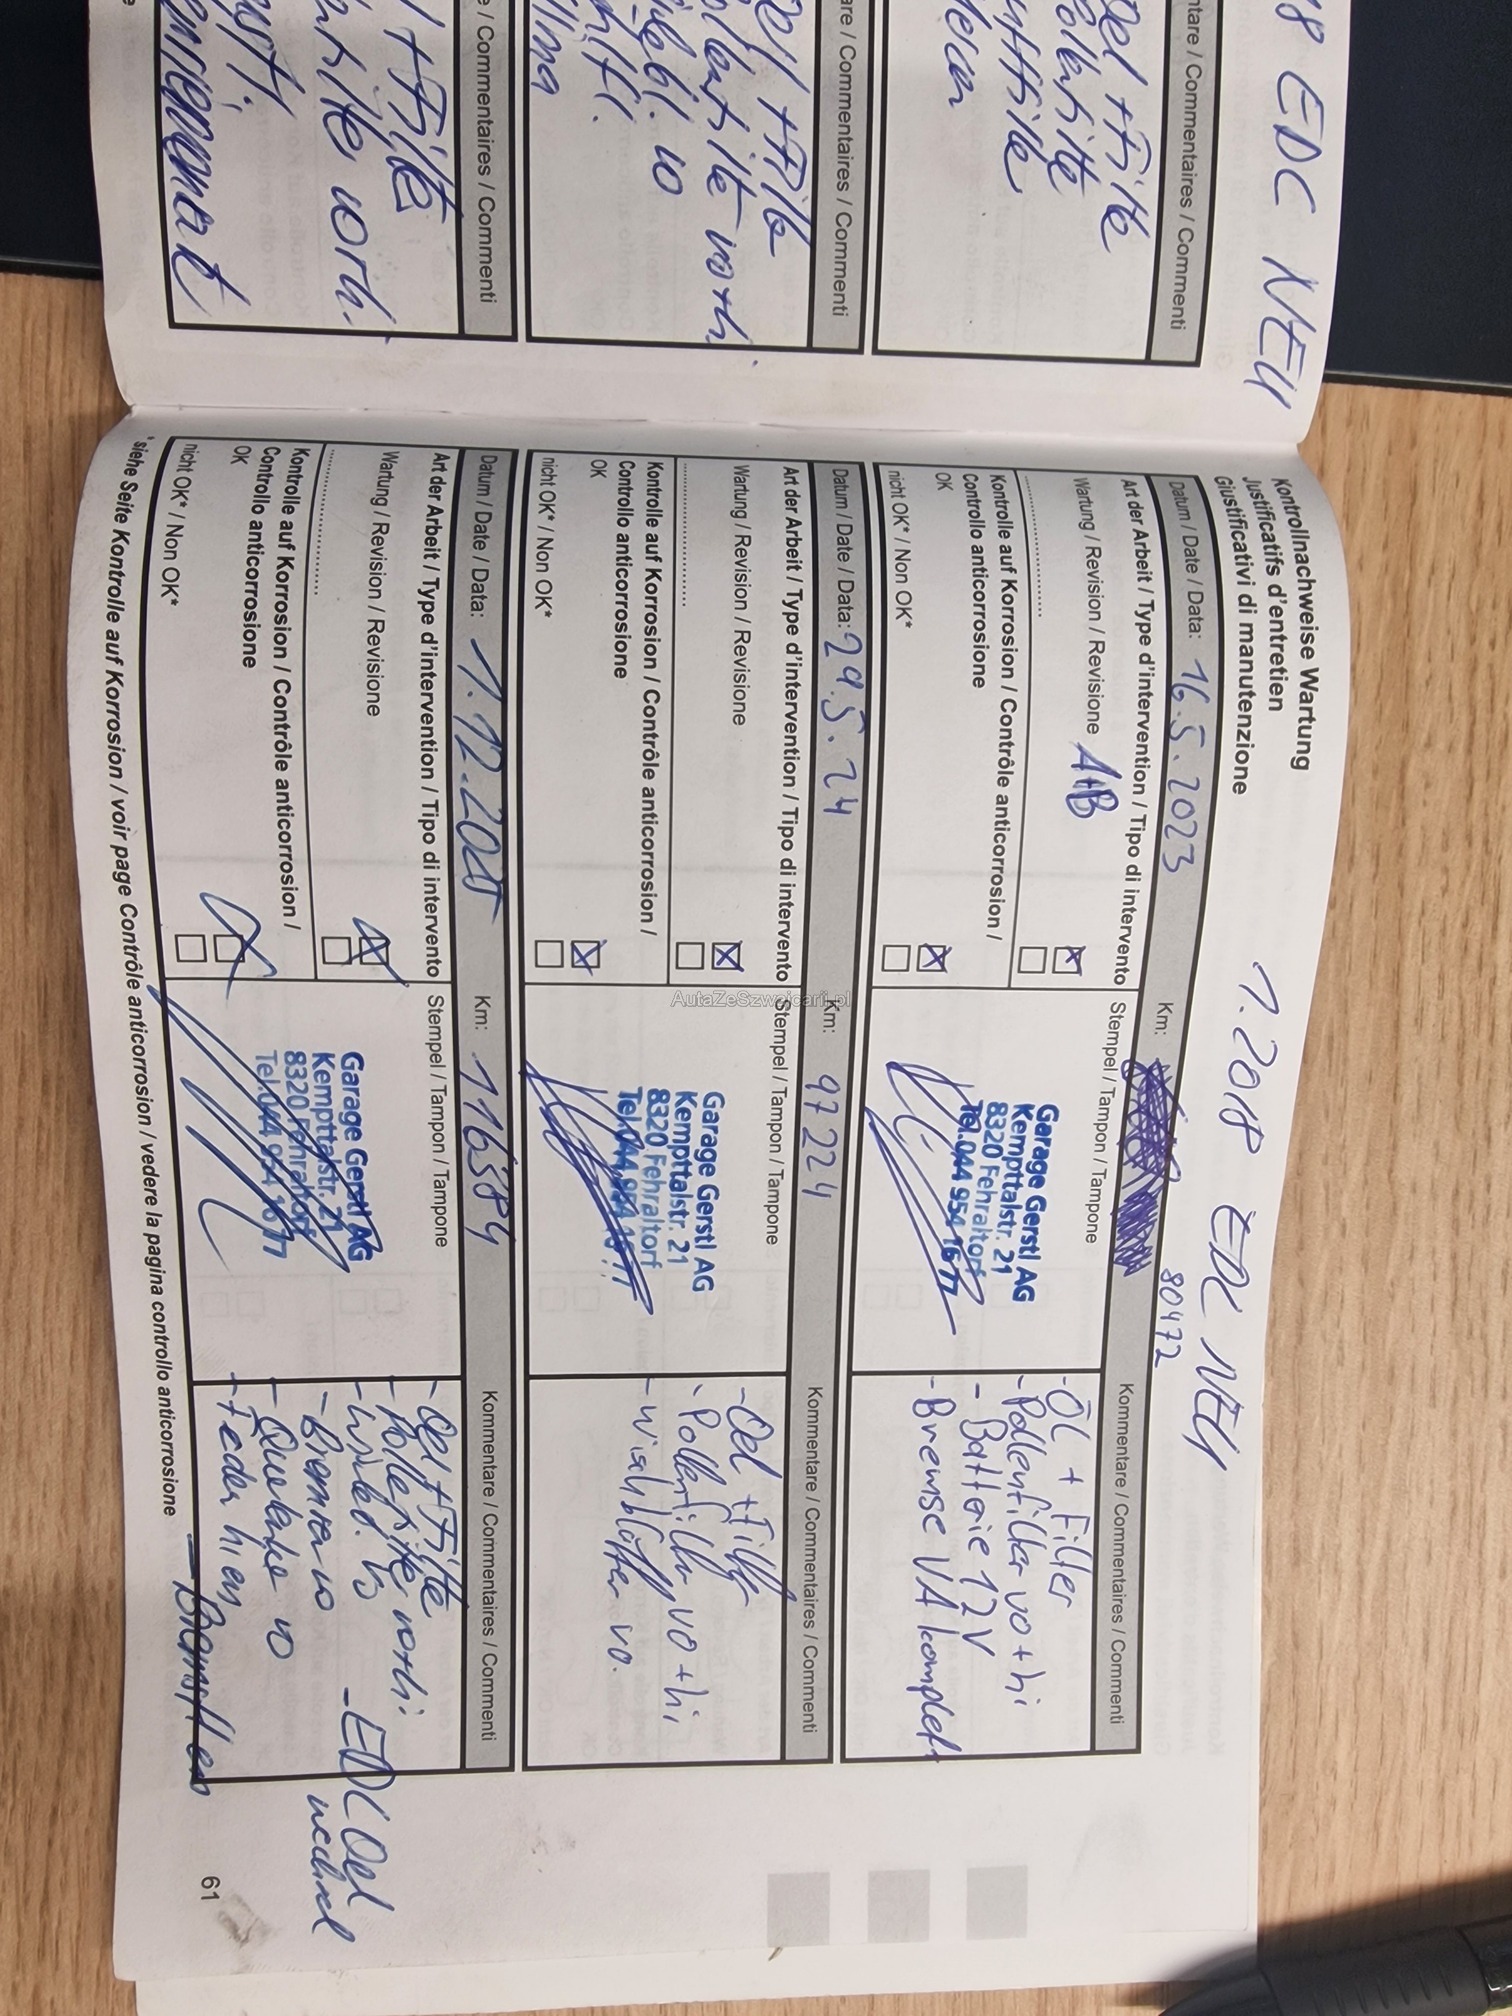 18 EDC NEU
ntare / Commentaires / Commenti
Oel + Filte
are / Commentaires / Commenti
Oel + Filte
vo
e / Commentaires / Commenti
+ Filte
Kontrollnachweise Wartung
Justificatifs d'entretien
Giustificativi di manutenzione
1.2018 EDC NEU
Datum / Date / Data: 16.5.2023
Km: 80472
Art der Arbeit / Type d'intervention / Tipo di intervento
Wartung / Revision / Revisione A+B
Kontrolle auf Korrosion / Contrôle anticorrosion /
Controllo anticorrosione
OK
nicht OK* / Non OK*
Stempel / Tampon / Tampone
Garage Gerstl AG
Kempttalstr. 21
8320 Fehraltorf
Tel.044 954 16 77
Kommentare / Commentaires / Commenti
- ÖL + Filter
- Pollenfilter vo + hi
- Batterie 12V
- Bremse VA komplett
Datum / Date / Data: 29.5.24
Km: 97 224
Art der Arbeit / Type d'intervention / Tipo di intervento
Wartung / Revision / Revisione
Kontrolle auf Korrosion / Contrôle anticorrosion /
Controllo anticorrosione
OK
nicht OK* / Non OK*
Stempel / Tampon / Tampone
Garage Gerstl AG
Kempttalstr. 21
8320 Fehraltorf
Tel.044 954 16 77
Kommentare / Commentaires / Commenti
- Oel + Filter
- Pollenfilter vo + hi
- Wischblätter vo.
Datum / Date / Data: 1.12.2025
Km: 116384
Art der Arbeit / Type d'intervention / Tipo di intervento
Wartung / Revision / Revisione
Kontrolle auf Korrosion / Contrôle anticorrosion /
Controllo anticorrosione
OK
nicht OK* / Non OK*
Stempel / Tampon / Tampone
Garage Gerstl AG
Kempttalstr. 21
8320 Fehraltorf
Tel.044 954 16 77
Kommentare / Commentaires / Commenti
- Oel + Filte
- Pollefilte vo+hi.
- EDC Oel
wechsel
- Bremsen vo
vo
- Feder hi
* siehe Seite Kontrolle auf Korrosion / voir page Contrôle anticorrosion / vedere la pagina controllo anticorrosione
61
AutaZeSzwajcarii.pl